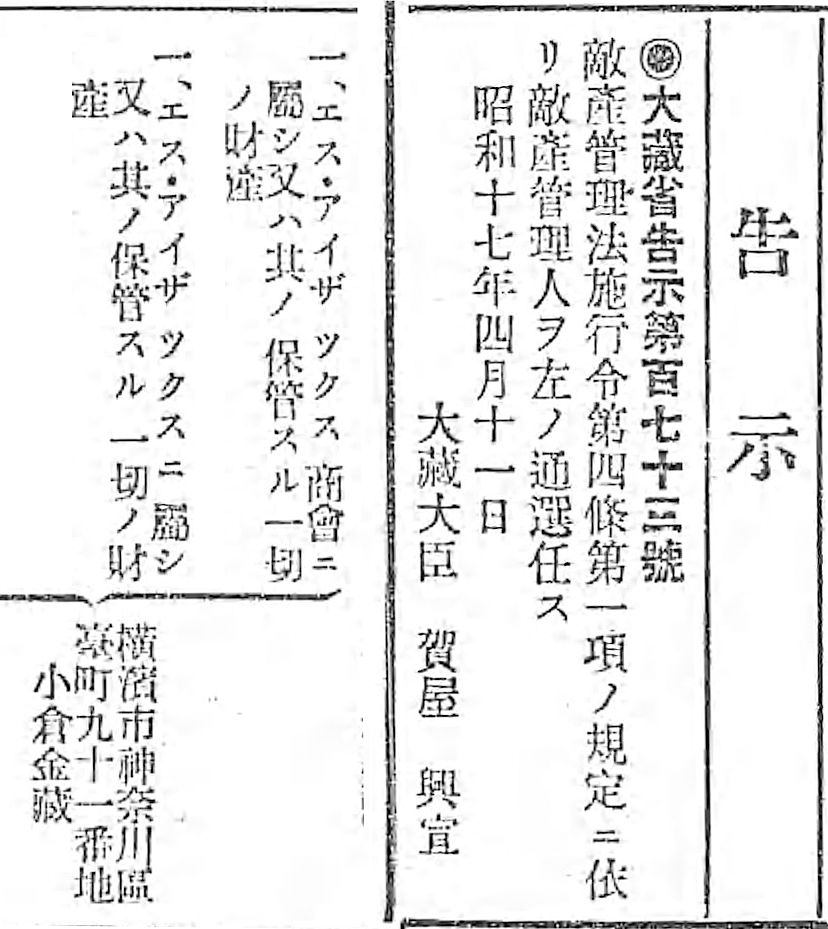 告示
◉大藏省告示第百七十三號
敵產管理法施行令第四條第一項ノ規定ニ依
リ敵產管理人ヲ左ノ通選任ス
昭和十七年四月十一日
大藏大臣 賀屋 興宣
一、エス・アイザツクス商會ニ
屬シ又ハ其ノ保管スル一切
ノ財產
一、エス・アイザツクスニ屬シ
又ハ其ノ保管スル一切ノ財
產
橫濱市神奈川區
臺町九十一番地
小倉金藏